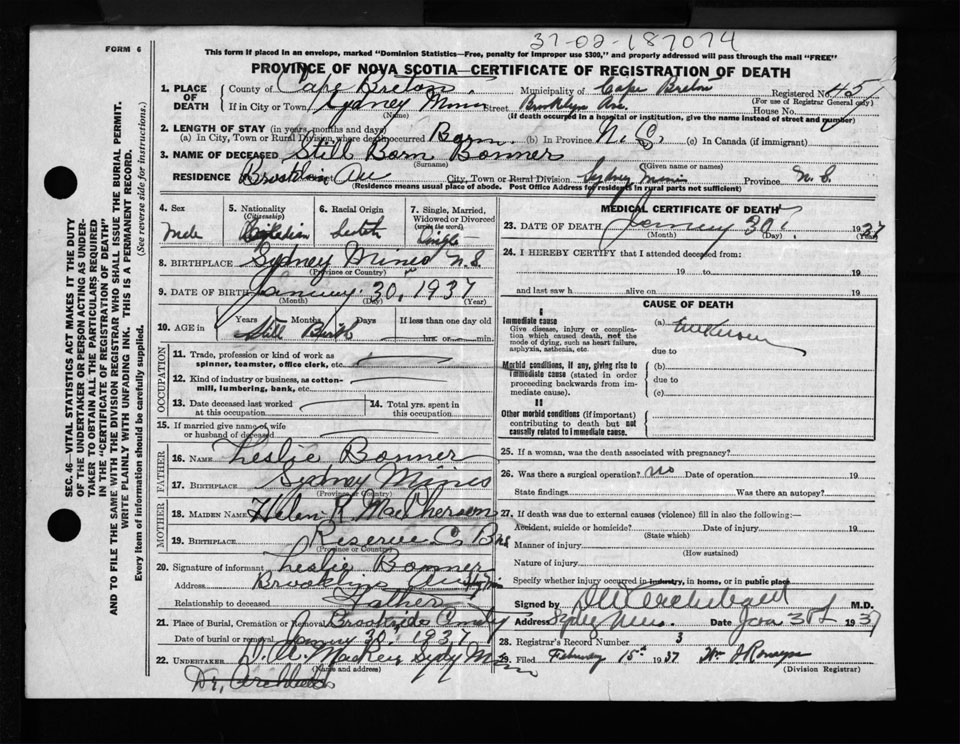 37-02-187074
FORM 6
This form if placed in an envelope, marked "Dominion Statistics—Free, penalty for improper use $300," and properly addressed will pass through the mail "FREE"
PROVINCE OF NOVA SCOTIA—CERTIFICATE OF REGISTRATION OF DEATH
SEC. 46—VITAL STATISTICS ACT MAKES IT THE DUTY
OF THE UNDERTAKER OR PERSON ACTING AS UNDER-
TAKER TO OBTAIN ALL THE PARTICULARS REQUIRED
IN THE "CERTIFICATE OF REGISTRATION OF DEATH"
AND TO FILE THE SAME WITH THE DIVISION REGISTRAR WHO SHALL ISSUE THE BURIAL PERMIT.
WRITE PLAINLY WITH UNFADING INK. THIS IS A PERMANENT RECORD.
Every item of information should be carefully supplied.
(See reverse side for instructions.)
1. PLACE OF DEATH
County of Cape Breton Municipality of Cape Breton Registered No. 45
(For use of Registrar General only)
If in City or Town Sydney Mines Street Brooklyn Ave. House No.
(Name) (If death occurred in hospital or institution, give the name instead of street and number)
2. LENGTH OF STAY (in years, months and days)
(a) In City, Town or Rural Division where death occurred Born (b) In Province N. S. (c) In Canada (if immigrant)
3. NAME OF DECEASED Still Born Bonner
(Surname) (Given name or names)
RESIDENCE Ave City, Town or Rural Division Sydney Mines Province N. S.
(Residence means usual place of abode. Post Office Address for residents in rural parts not sufficient)
4. Sex 5. Nationality (Citizenship) 6. Racial Origin 7. Single, Married, Widowed or Divorced (write the word)
Male Canadian Scotch Single
8. BIRTHPLACE Sydney Mines N.S.
(Province or Country)
9. DATE OF BIRTH January 30, 1937
(Month) (Day) (Year)
10. AGE in Years Months Days If less than one day old
Still Birth hrs. or min.
OCCUPATION
11. Trade, profession or kind of work as spinner, teamster, office clerk, etc.
12. Kind of industry or business, as cotton-mill, lumbering, bank, etc.
13. Date deceased last worked at this occupation 14. Total yrs. spent in this occupation
15. If married give name of wife or husband of deceased
FATHER
16. NAME Leslie Bonner
17. BIRTHPLACE Sydney Mines
(Province or Country)
MOTHER
18. MAIDEN NAME Helen R. MacPherson
19. BIRTHPLACE Reserve C. B.
(Province or Country)
20. Signature of informant Leslie Bonner
Address
Relationship to deceased Father
21. Place of Burial, Cremation or Removal Brookside
Date of burial or removal 30, 1937
22. UNDERTAKER MacKay
(Name and address)
Dr.
MEDICAL CERTIFICATE OF DEATH
23. DATE OF DEATH 30 1937
(Month) (Day) (Year)
24. I HEREBY CERTIFY that I attended deceased from:
19 to 19
and last saw h alive on 19
CAUSE OF DEATH
I
Immediate cause
Give disease, injury or complication which caused death, not the mode of dying, such as heart failure, asphyxia, asthenia, etc.
(a)
due to
Morbid conditions, if any, giving rise to immediate cause (stated in order proceeding backwards from immediate cause).
(b)
due to
(c)
II
Other morbid conditions (if important) contributing to death but not causally related to immediate cause.
25. If a woman, was the death associated with pregnancy?
26. Was there a surgical operation? no Date of operation 19
State findings Was there an autopsy?
27. If death was due to external causes (violence) fill in also the following:—
Accident, suicide or homicide? Date of injury 19
(State which)
Manner of injury
(How sustained)
Nature of injury
Specify whether injury occurred in industry, in home, or in public place
Signed by Archibald M.D.
Address Date Jan 1937
28. Registrar's Record Number 3
29. Filed February 15th 1937 Wm
(Division Registrar)